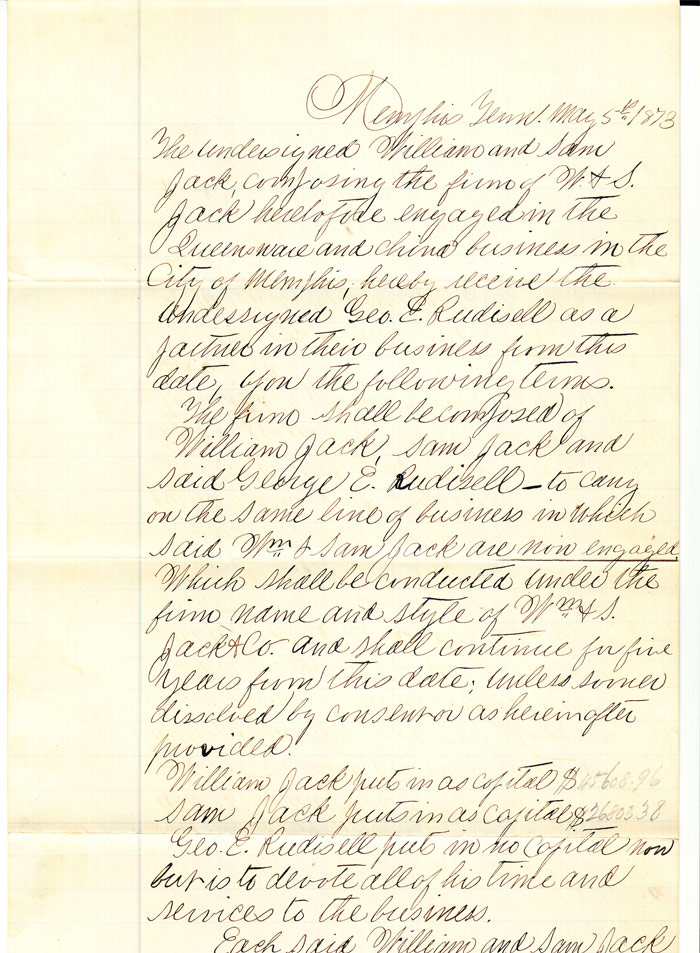 Memphis Tenn. May 5th 1873
The undersigned William and Sam
Jack, composing the firm of W. & S.
Jack heretofore engaged in the
Queensware and china business in the
City of Memphis, hereby receive the
undersigned Geo. E. Rudisell as a
partner in their business from this
date, upon the following terms.
The firm shall be composed of
William Jack, Sam Jack and
said George E. Rudisell – to carry
on the same line of business in which
said Wm & Sam Jack are now engaged
Which shall be conducted under the
firm name and style of Wm & S.
Jack & Co. and shall continue for five
years from this date; unless sooner
dissolved by consent or as hereinafter
provided.
William Jack puts in as capital $45608.96
Sam Jack puts in as capital $26803.38
Geo. E. Rudisell puts in no capital now
but is to devote all of his time and
services to the business.
Each said William and Sam Jack